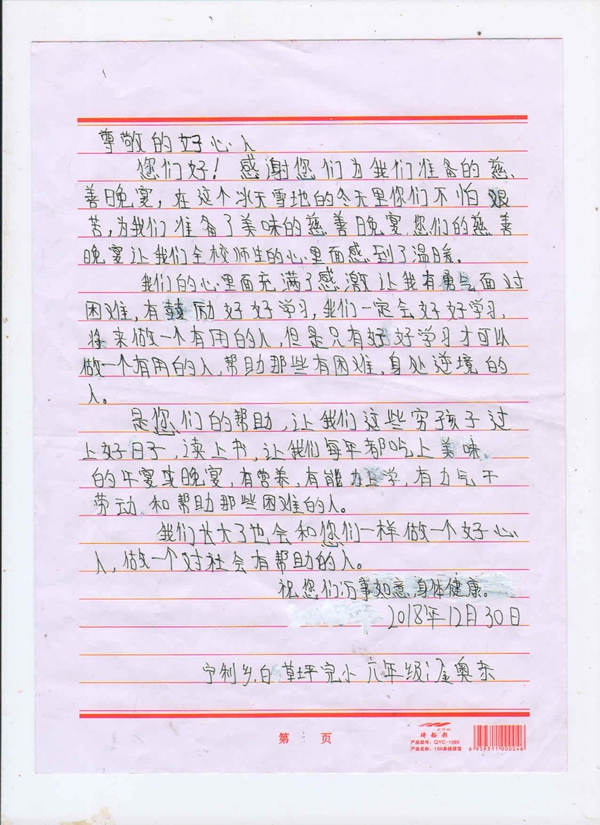 尊敬的好心人
您们好！感谢您们为我们准备的慈
善晚宴，在这个冰天雪地的冬天里你们不怕艰
苦，为我们准备了美味的慈善晚宴，您们的慈善
晚宴让我们全校师生的心里面感到了温暖。
我们的心里面充满了感激让我有勇气面对
困难，有鼓励好好学习，我们一定会好好学习，
将来做一个有用的人，但是只有好好学习才可以
做一个有用的人，帮助那些有困难，身处逆境的
人。
是您们的帮助，让我们这些穷孩子过
上好日子，读上书，让我们每年都吃上美味
的午宴晚宴，有营养，有能力上学，有力气干
劳动，和帮助那些困难的人。
我们长大了也会和您们一样做一个好心
人，做一个对社会有帮助的人。
祝您们万事如意，身体健康。
2018年12月30日
宁利乡白草坪完小六年级 奥东
第 页
琦裕彤
产品型号：QYC-1066
产品名称：16K单线信笺